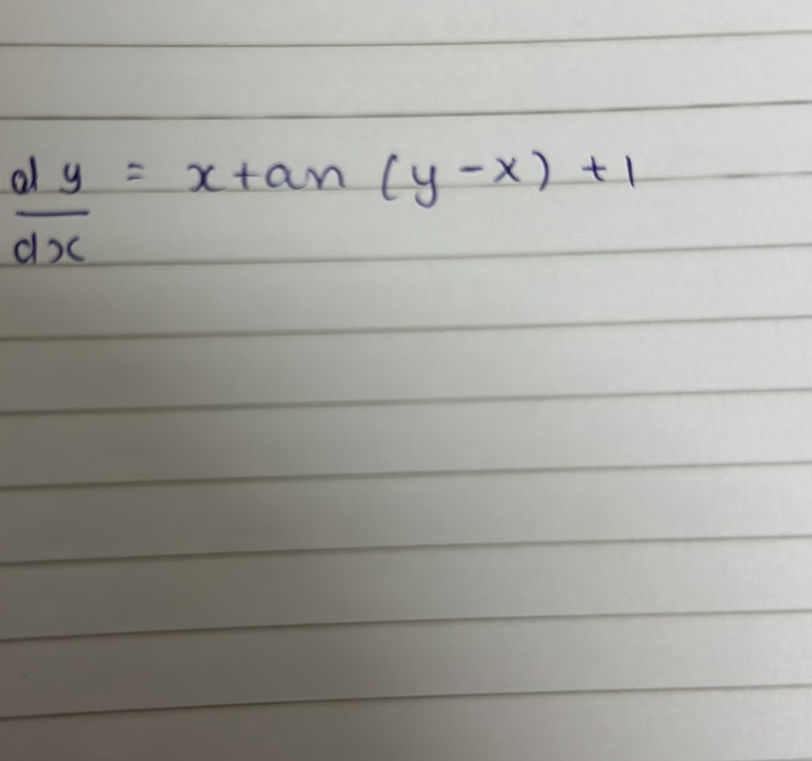 dy/dx = x tan (y - x) + 1